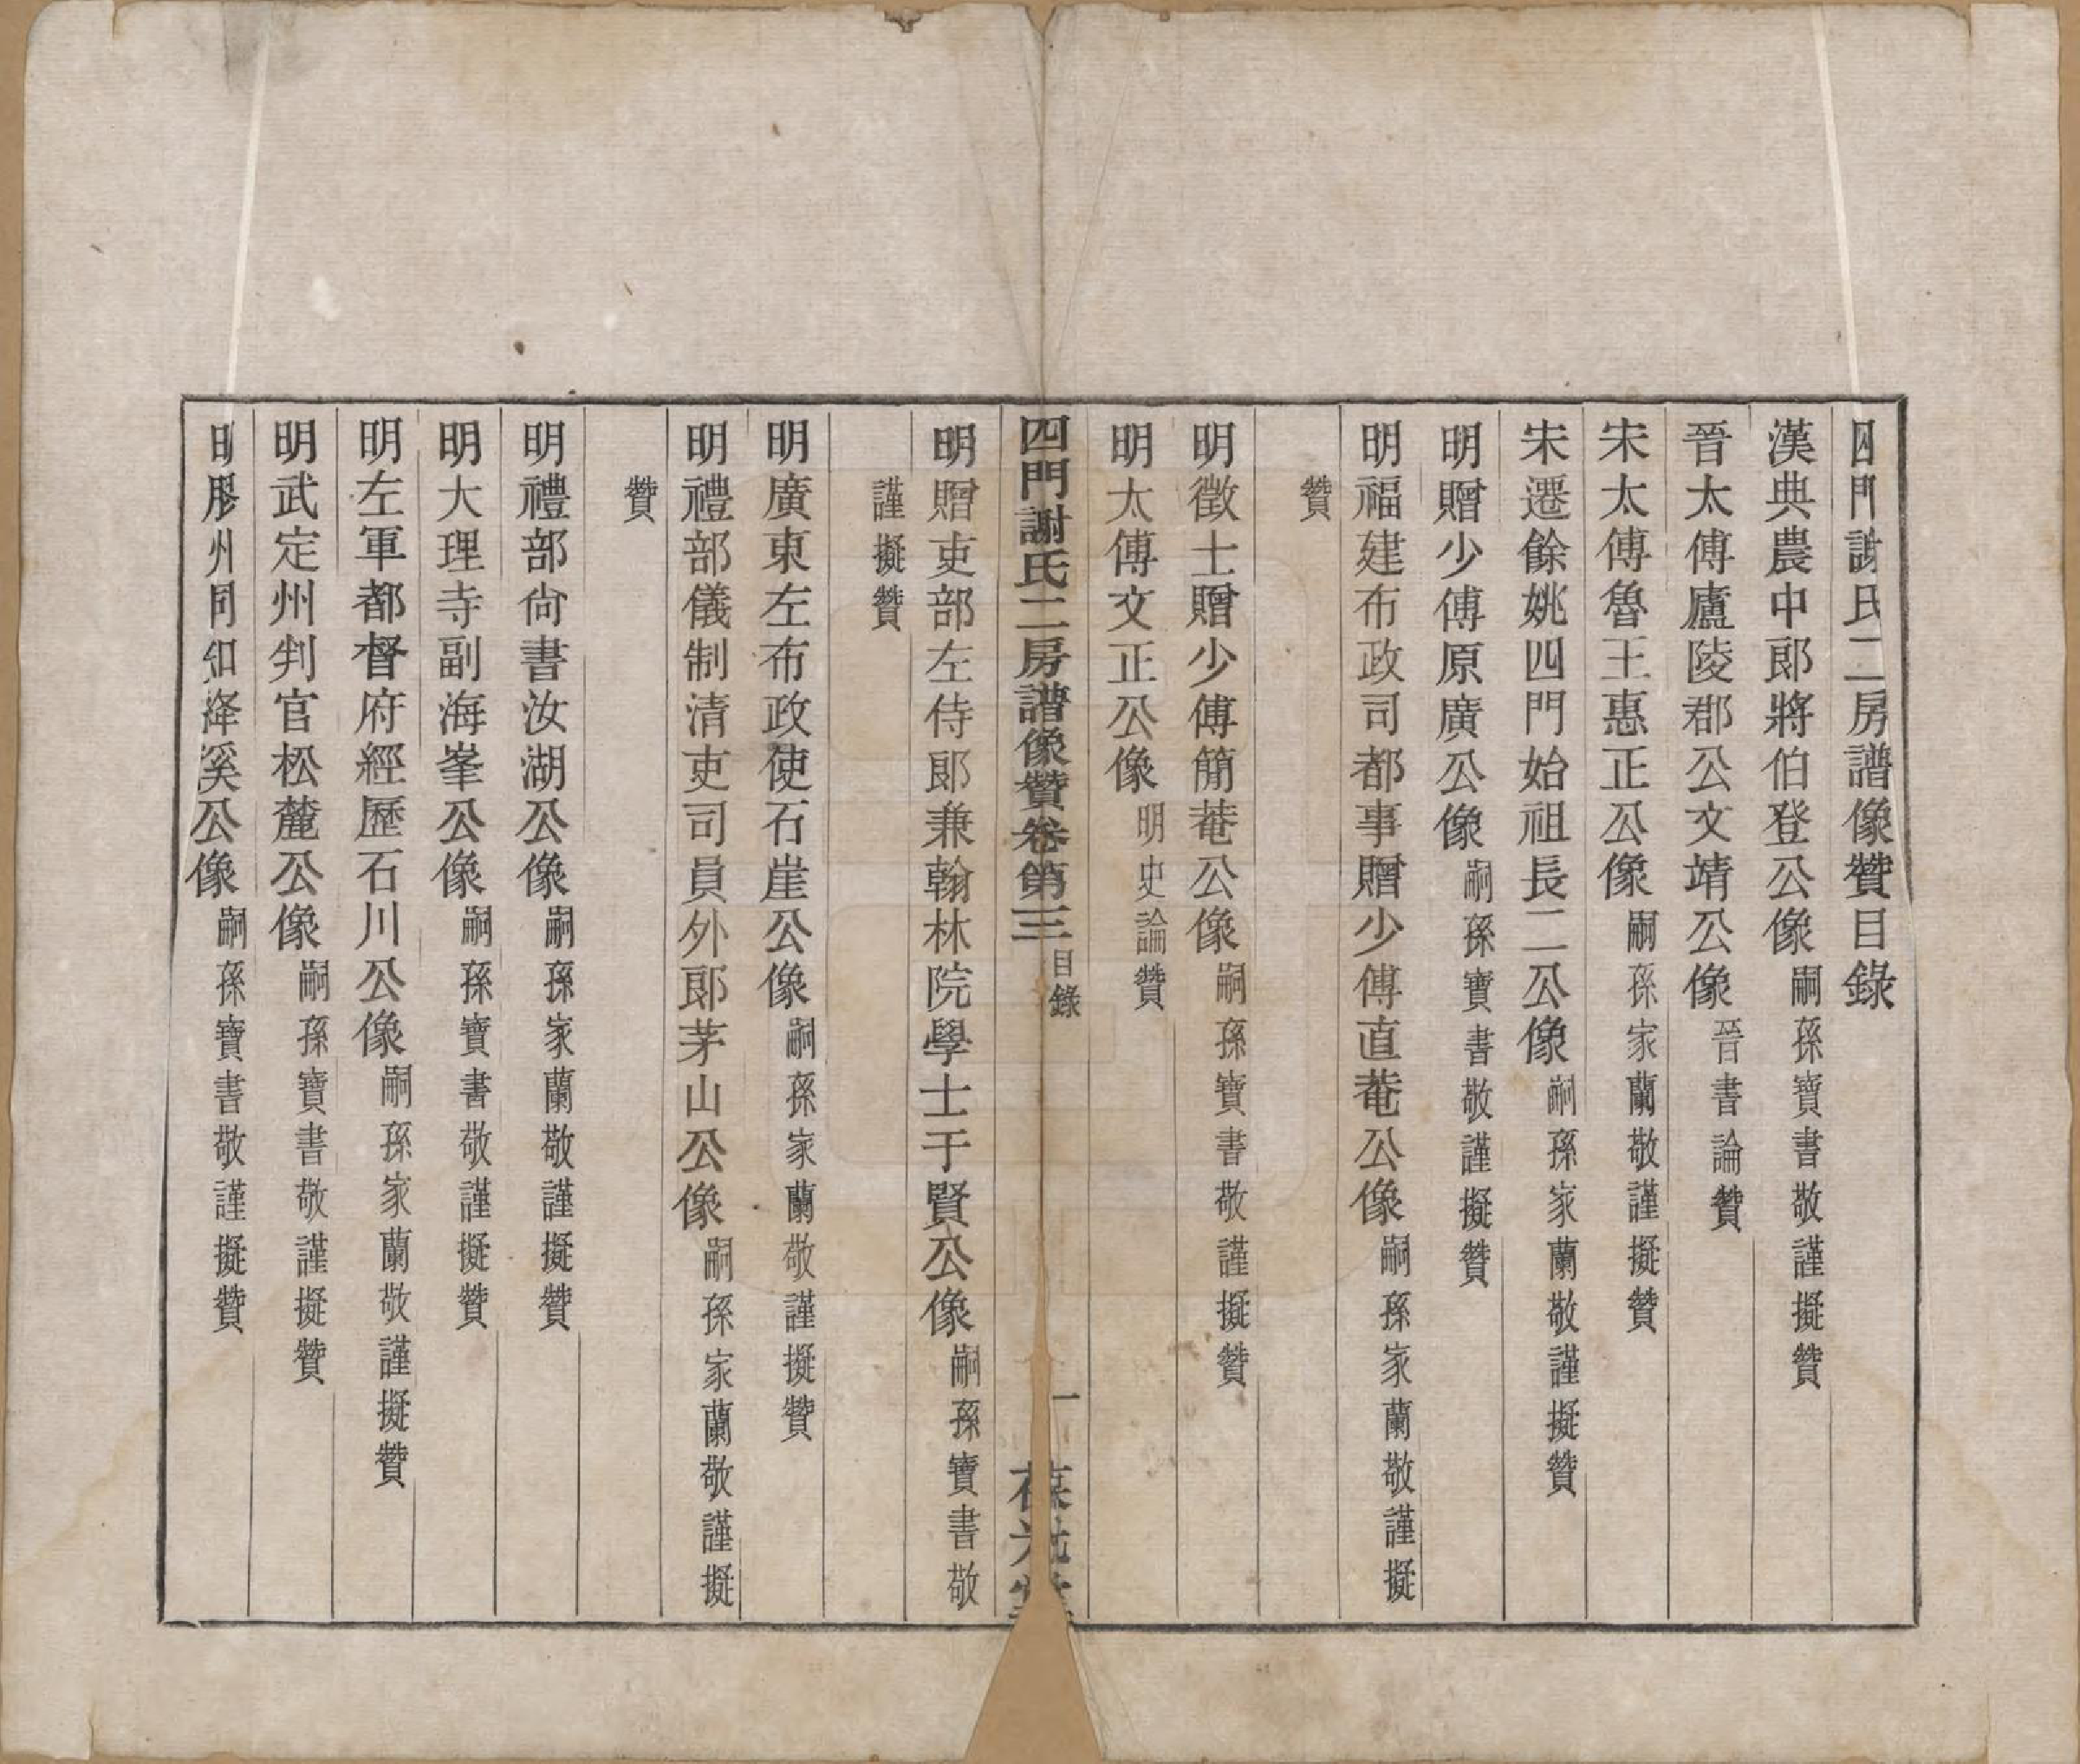 四門謝氏二房譜像贊目錄
漢典農中郎將伯登公像嗣孫寶書敬謹擬贊
晉太傅廬陵郡公文靖公像晉書論贊
宋太傅魯王惠正公像嗣孫家蘭敬謹擬贊
宋遷餘姚四門始祖長二公像嗣孫家蘭敬謹擬贊
明贈少傅原廣公像嗣孫寶書敬謹擬贊
明福建布政司都事贈少傅直菴公像嗣孫家蘭敬謹擬
贊
明徵士贈少傅簡菴公像嗣孫寶書敬謹擬贊
明太傅文正公像明史論贊
四門謝氏二房譜像贊卷第三目錄
一
葆光堂
明贈吏部左侍郎兼翰林院學士于賢公像嗣孫寶書敬
謹擬贊
明廣東左布政使石崖公像嗣孫家蘭敬謹擬贊
明禮部儀制清吏司員外郎茅山公像嗣孫家蘭敬謹擬
贊
明禮部尙書汝湖公像嗣孫家蘭敬謹擬贊
明大理寺副海峯公像嗣孫寶書敬謹擬贊
明左軍都督府經歷石川公像嗣孫家蘭敬謹擬贊
明武定州判官松麓公像嗣孫寶書敬謹擬贊
明膠州同知絳溪公像嗣孫寶書敬謹擬贊